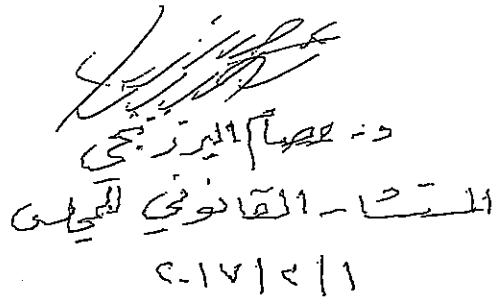 د. عصام البرزنجي
المستشار القانوني للمجلس
١/٢/٢٠١٧